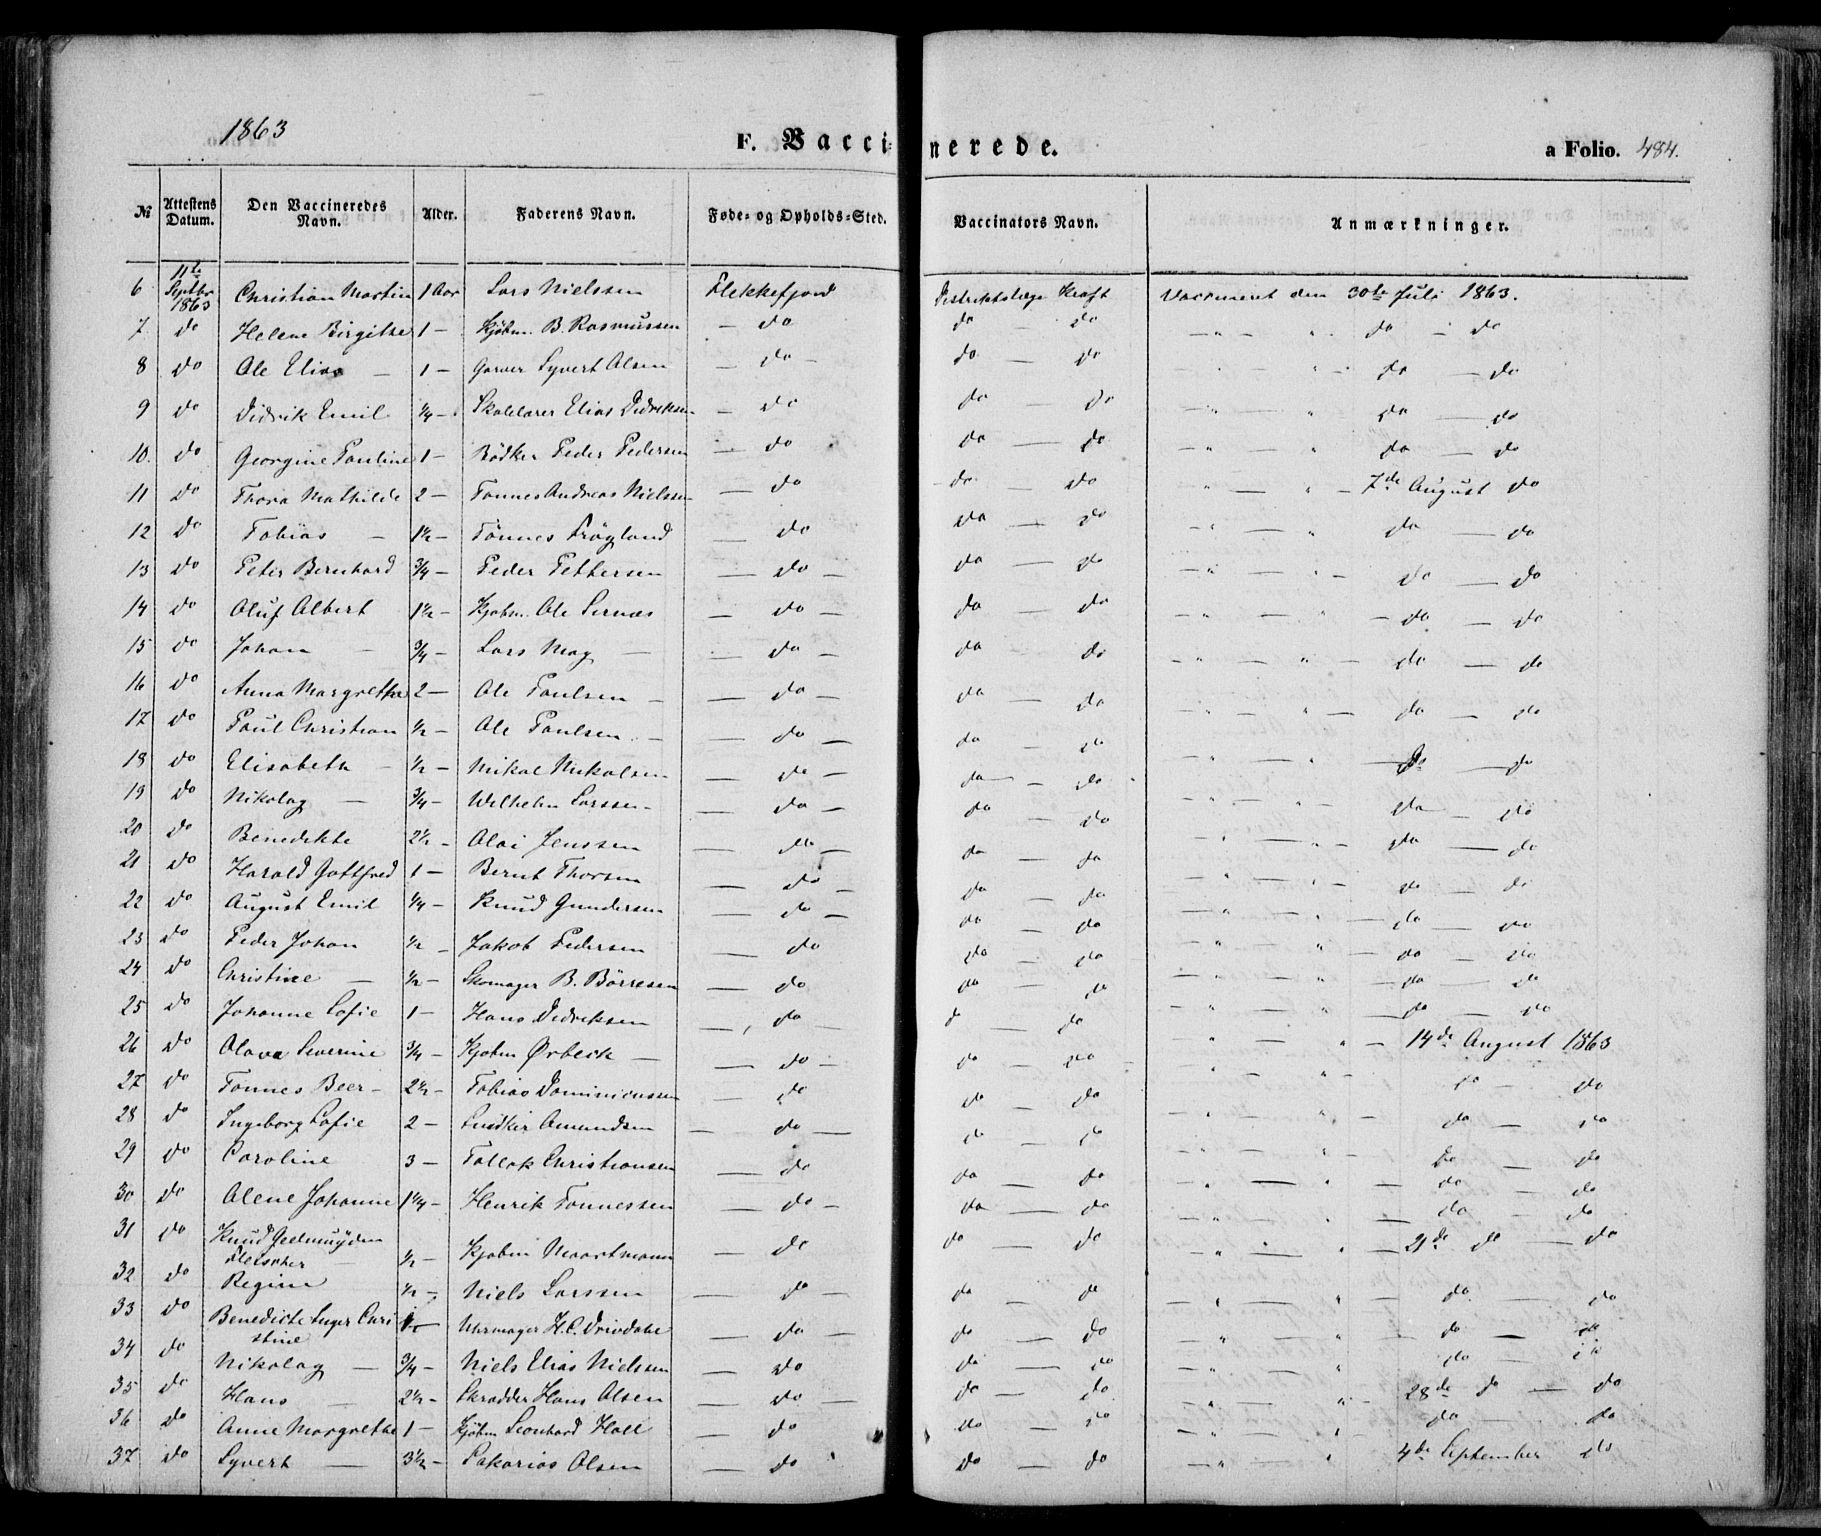 1863
F. Vaccinerede.
a Folio. 484.
№ Attestens Datum. Den Vaccineredes Navn. Alder. Faderens Navn. Føde- og Opholds-Sted. Vaccinators Navn. Anmærkninger.
6 11te Septbr 1863 Christian Martin 1 Aar Lars Nielssen Flekkefjord Distriktslæge Kraft Vaccineret den 30te Juli 1863.
7 do Helene Birgithe 1 — Kjøbm. B. Rasmussen — do do do — " — " do — do
8 do Ole Elias — 1 — Garver Syvert Olsen — do — do — do — " — " — do — do
9 do Didrik Emil ¼ — Skolelærer Elias Didriksen — do do — do — " — " do — do
10. do Georgine Pauline 1 — Bödker Peder Pedersen — do do — do — " — " do — do
11 do Thora Mathilde 2 — Tönnes Andreas Nielssen — do do — do " — " — 7de August do
12 do Tobias — 1½ — Tönnes Frögland do do — do — " — " do — do
13 do Peter Bernhard ¾ — Peder Pettersen — do — do — do — " — " — do — do
14 do Oluf Albert 1½ — Kjøbm. Ole Sirnæs — do — do — do — " — " — do — do
15 do Johan — ¾ — Lars Mag — — do — do do — " — " — do — do
16 do Anna Margrethe 2 — Ole Paulsen — — do — do — do — " — " — do — do
17 do Paul Christian ½ — Ole Paulsen — — do — do — do — " — " — do — do
18 do Elisabeth — ½ — Mikal Mikalsen — do — do — do — " — " — do — do
19 do Nikolay — ¾ — Wilhelm Larssen — do — do — do — " — " — do — do
20 do Benedikte 2½ — Olai Jenssen — do — do — do — " — " — do — do
21 do Harald Gottfred 1 — Bernt Thorsen — do — do — do — " — " — do — do
22 do August Emil ¼ — Knud Gundersen — do — do — do — " — " — do — do
23 do Peder Johan ½ — Jakob Pedersen — do do — do " " — do — do
24 do Christine — ½ — Skomager B. Börresen — do do — do — " — " — do — do
25 do Johanne Sofie 1 — Hans Didriksen — do — do — do — " — " — do — do
26 do Olava Severine ¾ — Kjøbm Ørbeck — — do — do — do " — " — 14de August 1863
27 do Tönnes Beer — 2½ — Tobias Dominicussen — do do — do " — " — do — do
28 do Ingeborg Sofie 2 — Amundsen — do — do — do — " — " do — do
29 do Caroline 3 — Tollak Christiansen — do do — do — " — " do — do
30 do Olene Johanne 1¼ — Henrik Tönnessen — do — do — do — " — " — do — do
31 do Knud Geelmuÿden Fleischer — ½ — Kjøbm Maartmann — do do — do — " — " — 21de do — do
32 do Regine ½ — Niels Larssen — do — do — do — " — " do — do
33 do Benedicte Inger Christine 1 — Uhrmager H. C. Drivdahl — do — do — do — " — " do — do
34 do Nikolay — ¾ — Niels Elias Nielssen — do do — do — " — " do — do
35 do Hans — 2½ — Skrædder Hans Olsen — do — do — do — " — " 28de do — do
36 do Anne Margrethe 1 — Kjøbm Leonhard Hall — do do — do — " — " do — do
37 do Syvert — 3½ — Sakarias Olsen — do do — do — " — " 4de September do